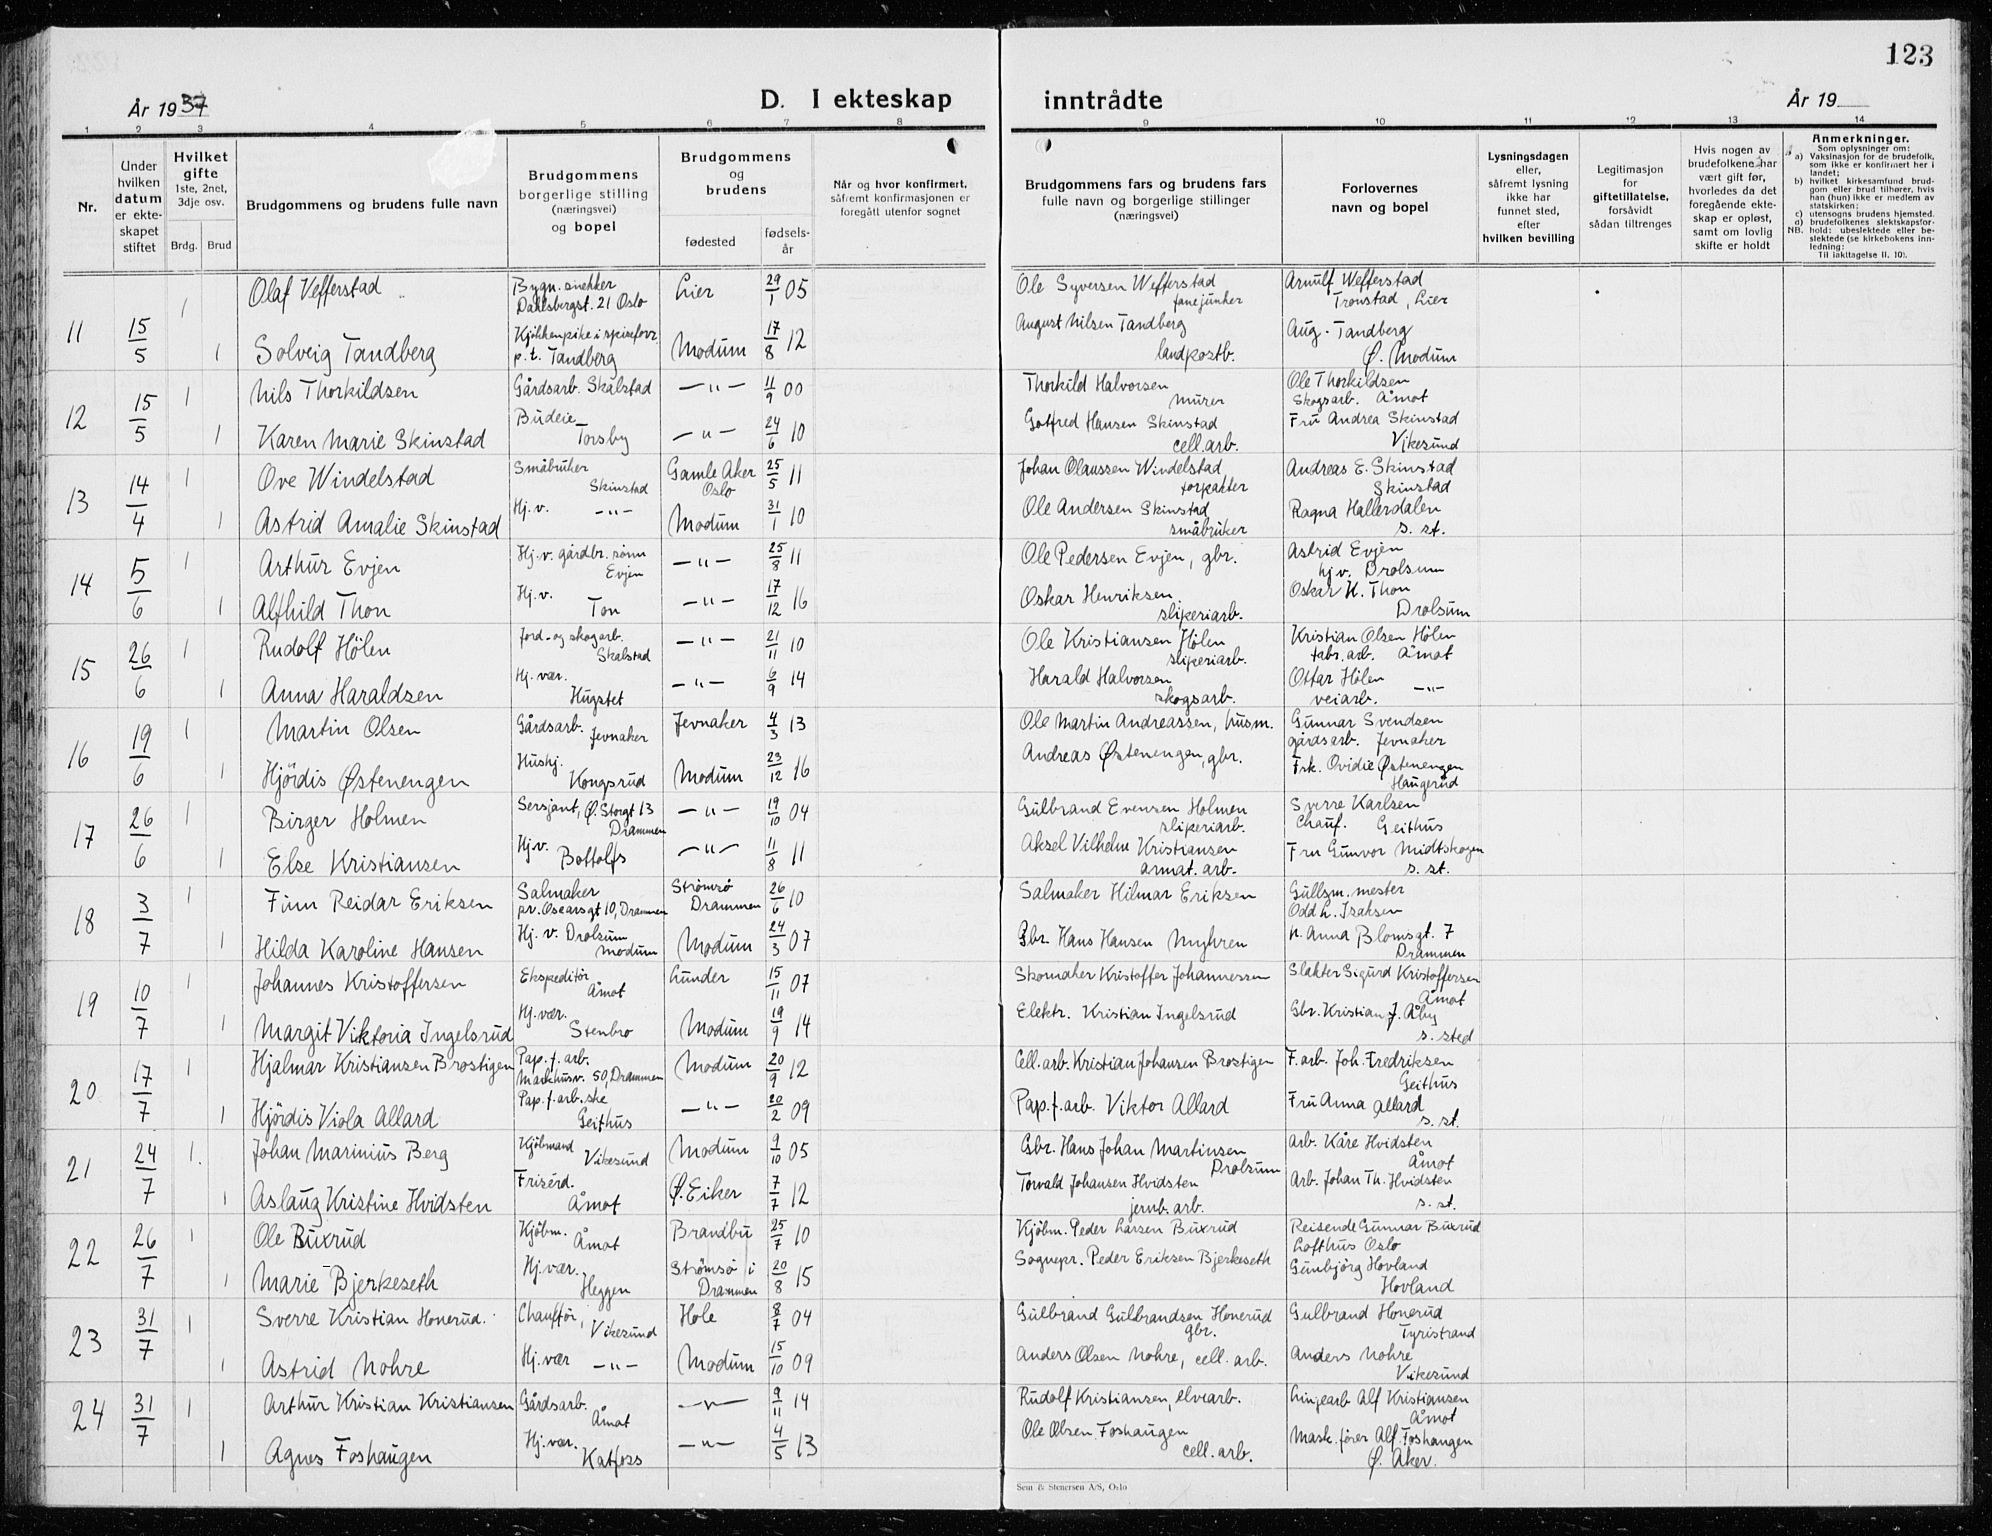 123
År 1937
D. I ekteskap inntrådte
År 19
1 2 3 4 5 6 7 8 9 10 11 12 13 14
Nr.
Under hvilken datum er ekteskapet stiftet
Hvilket gifte
1ste, 2net, 3dje osv.
Brdg. Brud
Brudgommens og brudens fulle navn
Brudgommens borgerlige stilling (næringsvei) og bopel
Brudgommens og brudens
fødested
fødselsår
Når og hvor konfirmert, såfremt konfirmasjonen er foregått utenfor sognet
Brudgommens fars og brudens fars fulle navn og borgerlige stillinger (næringsvei)
Forlovernes navn og bopel
Lysningsdagen eller, såfremt lysning ikke har funnet sted, efter hvilken bevilling
Legitimasjon for giftetillatelse, forsåvidt sådan tiltrenges
Hvis nogen av brudefolkene har vært gift før, hvorledes da det foregående ekteskap er opløst, samt om lovlig skifte er holdt
Anmerkninger.
Som oplysninger om:
a) Vaksinasjon for de brudefolk, som ikke er konfirmert her i landet;
b) hvilket kirkesamfund brudgom eller brud tilhører, hvis han (hun) ikke er medlem av statskirken;
c) utensogns brudens hjemsted.
d) brudefolkenes slektskapsforhold: ubeslektede eller beslektede (se kirkebokens innledning:
NB.
Til iakttagelse II. 10).
11 15/5 1 Olaf Vefferstad Bygn. snekker Dahlsbergst. 21 Oslo Lier 29/1 05 Ole Syversen Wefferstad fanejunker Arnulf Wefferstad Tronstad, Lier
1 Solveig Tandberg Kjøkkenpike i spiseforr. p.t. Tandberg Modum 17/8 12 August Nilsen Tandberg landpostb. Aug. Tandberg Ø. Modum
12 15/5 1 Nils Thorkildsen Gårdsarb. Skalstad —"— 11/9 00 Thorkild Halvorsen murer Ole Thorkildsen Skogsarb. Åmot
1 Karen Marie Skinstad Budeie Torsby —"— 24/6 10 Gotfred Hansen Skinstad cell.arb. Fru Andrea Skinstad Vikesund
13 14/4 1 Ove Windelstad Småbruker Skinstad Gamle Aker Oslo 25/5 11 Johan Olaussen Windelstad forpakter Andreas E. Skinstad Skinstad
1 Astrid Amalie Skinstad Hj.v. —"— Modum 31/1 10 Ole Andersen Skinstad småbruker Ragna Hallerdalen s. st.
14 5/6 1 Arthur Evjen Hj.v. gårdbr. sønn Evjen —"— 25/8 11 Ole Pedersen Evjen, gbr. Astrid Evjen hj.v. Drolsum
1 Alfhild Thon Hj.v. Ton —"— 17/12 16 Oskar Henriksen slipeiarb. Oskar H. Thon Drolsum
15 26/6 1 Rudolf Hølen Jord- og skogarb. Skalstad —"— 21/11 10 Ole Kristiansen Hølen sliperiarb. Kristian Olsen Hølen fabr. arb. Åmot
1 Anna Haraldsen Hj. vær. Hugstet —"— 6/9 14 Harald Halvorsen skogsarb. Ottar Hølen veiarb. —"—
16 19/6 1 Martin Olsen Gårdsarb. Jevnaker Jevnaker 4/3 13 Ole Martin Andreassen, husm. Gunnar Svendsen gårdsarb. Jevnaker
1 Hjördis Østenengen Hushj. Kongsrud Modum 23/12 16 Andreas Østenengen, gbr. Frk. Ovidie Østenengen Haugerud
17 26/6 1 Birger Holmen Sersjant, Ø. Storgt 13 Drammen —"— 19/10 04 Gulbrand Evensen Holmen sliperiarb. Sverre Karlsen Chauf. Geithus
1 Else Kristiansen Hj.v. Bottolfs —"— 11/8 11 Aksel Vilhelm Kristiansen amat. arb. Fru Gunvor Midtskogen s. st.
18 3/7 1 Finn Reidar Eriksen Salmaker pr. Oscarsgt 10, Drammen Strømsø Drammen 26/6 10 Salmaker Hilmar Eriksen Gullsm. mester Odd L. Isaksen
1 Hilda Karoline Hansen Hj. v. Drolsum Modum Modum 24/3 07 Gbr. Hans Hansen Myhren N. Anna Blomsgt. 7 Drammen
19 10/7 1 Johannes Kristoffersen Ekspeditør Åmot Lunder 15/11 07 Skomaker Kristoffer Johannessen Slakter Sigurd Kristoffersen Åmot
1 Margit Viktoria Ingelsrud Hj. vær. Stenbro Modum 19/9 14 Elektr. Kristian Ingelsrud Gbr. Kristian J. Åby s. sted
20 17/7 1 Hjalmar Kristiansen Brostigen Pap. f. arb. Markhusv. 50, Drammen Modum 20/9 12 Cell. arb. Kristian Johansen Brostigen F. arb. Joh. Fredriksen Geithus
1 Hjördis Viola Allard Pap. f. arb. ske Geithus —"— 20/2 09 Pap. f. arb. Viktor Allard Fru Anna Allard s. st.
21 24/7 1. Johan Marinius Berg Kjöbmand Vikesund Modum 9/10 05 Gbr. Hans Johan Martinsen Drolsum arb. Kåre Hvidsten Åmot
1 Aslaug Kristine Hvidsten Frisérd. Åmot Ø. Eiker 7/7 12 Torvald Johansen Hvidsten jernb. arb. Arb. Johan Th. Hvidsten s. st.
22 26/7 1 Ole Buxrud Kjöbm. Åmot Brandbu 25/7 10 Kjöbm. Peder Larsen Buxrud Reisende Gunnar Buxrud Lofthus Oslo
1 Marie Bjerkeseth Hj. vær. Heggen Strömsö i Drammen 20/8 15 Sognepr. Peder Eriksen Bjerkeseth Gunbjörg Hovland Hovland
23 31/7 1 Sverre Kristian Honerud. Chauffør, Vikesund Hole 8/7 04 Gulbrand Gulbrandsen Honerud gbr. Gulbrand Honerud Tyristrand
1 Astrid Nohre Hj. vær —"— Modum 15/10 09 Anders Olsen Nohre, cell. arb. Anders Nohre Vikesund
24 31/7 1 Arthur Kristian Kristiansen Gårdsarb. Åmot —"— 9/11 14 Rudolf Kristiansen, elvearb. Linjearb Alf Kristiansen Åmot
1 Agnes Foshaugen Hj. vær. Katfoss —"— 4/5 13 Ole Olsen Foshaugen cell. arb. Mask. fører Alf Foshaugen Ø. Aker.
Sem & Stenersen A/S, Oslo